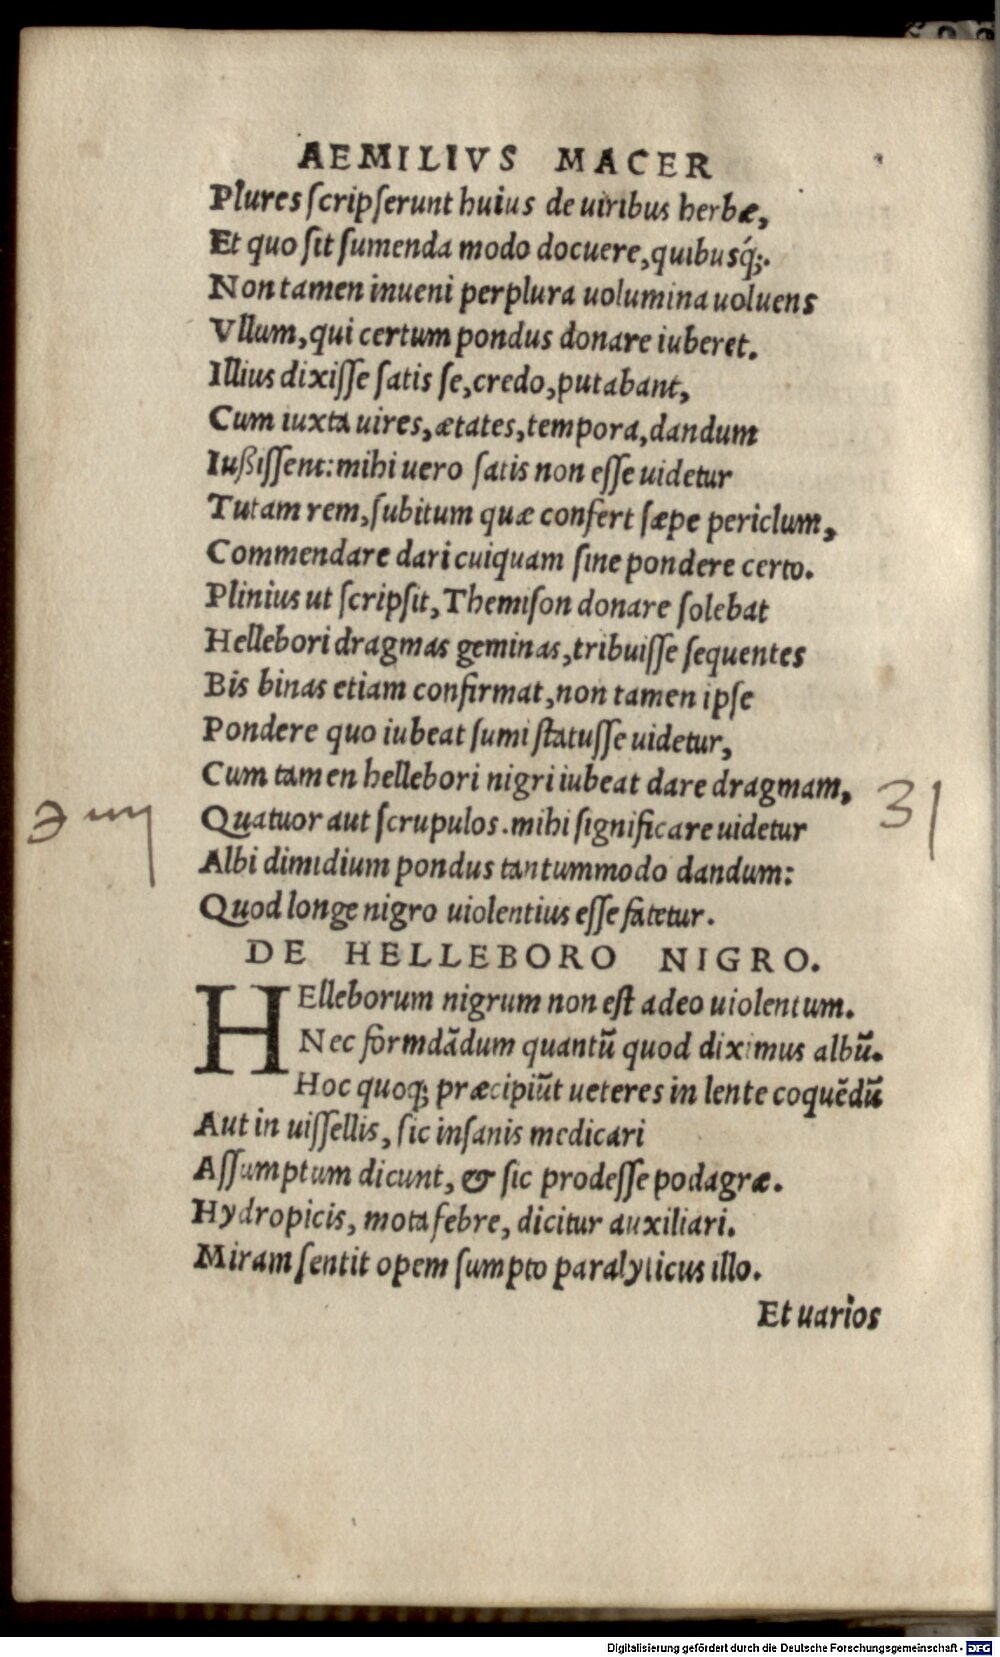 AEMILIVS MACER
Plures ſcripſerunt huius de uiribus herbæ,
Et quo ſit ſumenda modo docuere, quibusq́;.
Non tamen inueni perplura uolumina uoluens
Vllum, qui certum pondus donare iuberet.
Illius dixiſſe ſatis ſe, credo, putabant,
Cum iuxta uires, ætates, tempora, dandum
Iußiſſent: mihi uero ſatis non eſſe uidetur
Tutam rem, ſubitum quæ confert ſæpe periclum,
Commendare dari cuiquam ſine pondere certo.
Plinius ut ſcripſit, Themiſon donare ſolebat
Hellebori dragmas geminas, tribuiſſe ſequentes
Bis binas etiam confirmat, non tamen ipſe
Pondere quo iubeat ſumi ſtatuſſe uidetur,
Cum tamen hellebori nigri iubeat dare dragmam,
Quatuor aut ſcrupulos. mihi ſignificare uidetur
Albi dimidium pondus tantummodo dandum:
Quod longe nigro uiolentius eſſe fatetur.
DE HELLEBORO NIGRO.
HElleborum nigrum non eſt adeo uiolentum.
Nec formdādum quantū quod diximus albū.
Hoc quoq; præcipiūt ueteres in lente coquēdū
Aut in uiſſellis, ſic inſanis medicari
Aſſumptum dicunt, & ſic prodeſſe podagræ.
Hydropicis, mota febre, dicitur auxiliari.
Miram ſentit opem ſumpto paralyticus illo.
Et uarios
Digitalisierung gefördert durch die Deutsche Forschungsgemeinschaft - DFG